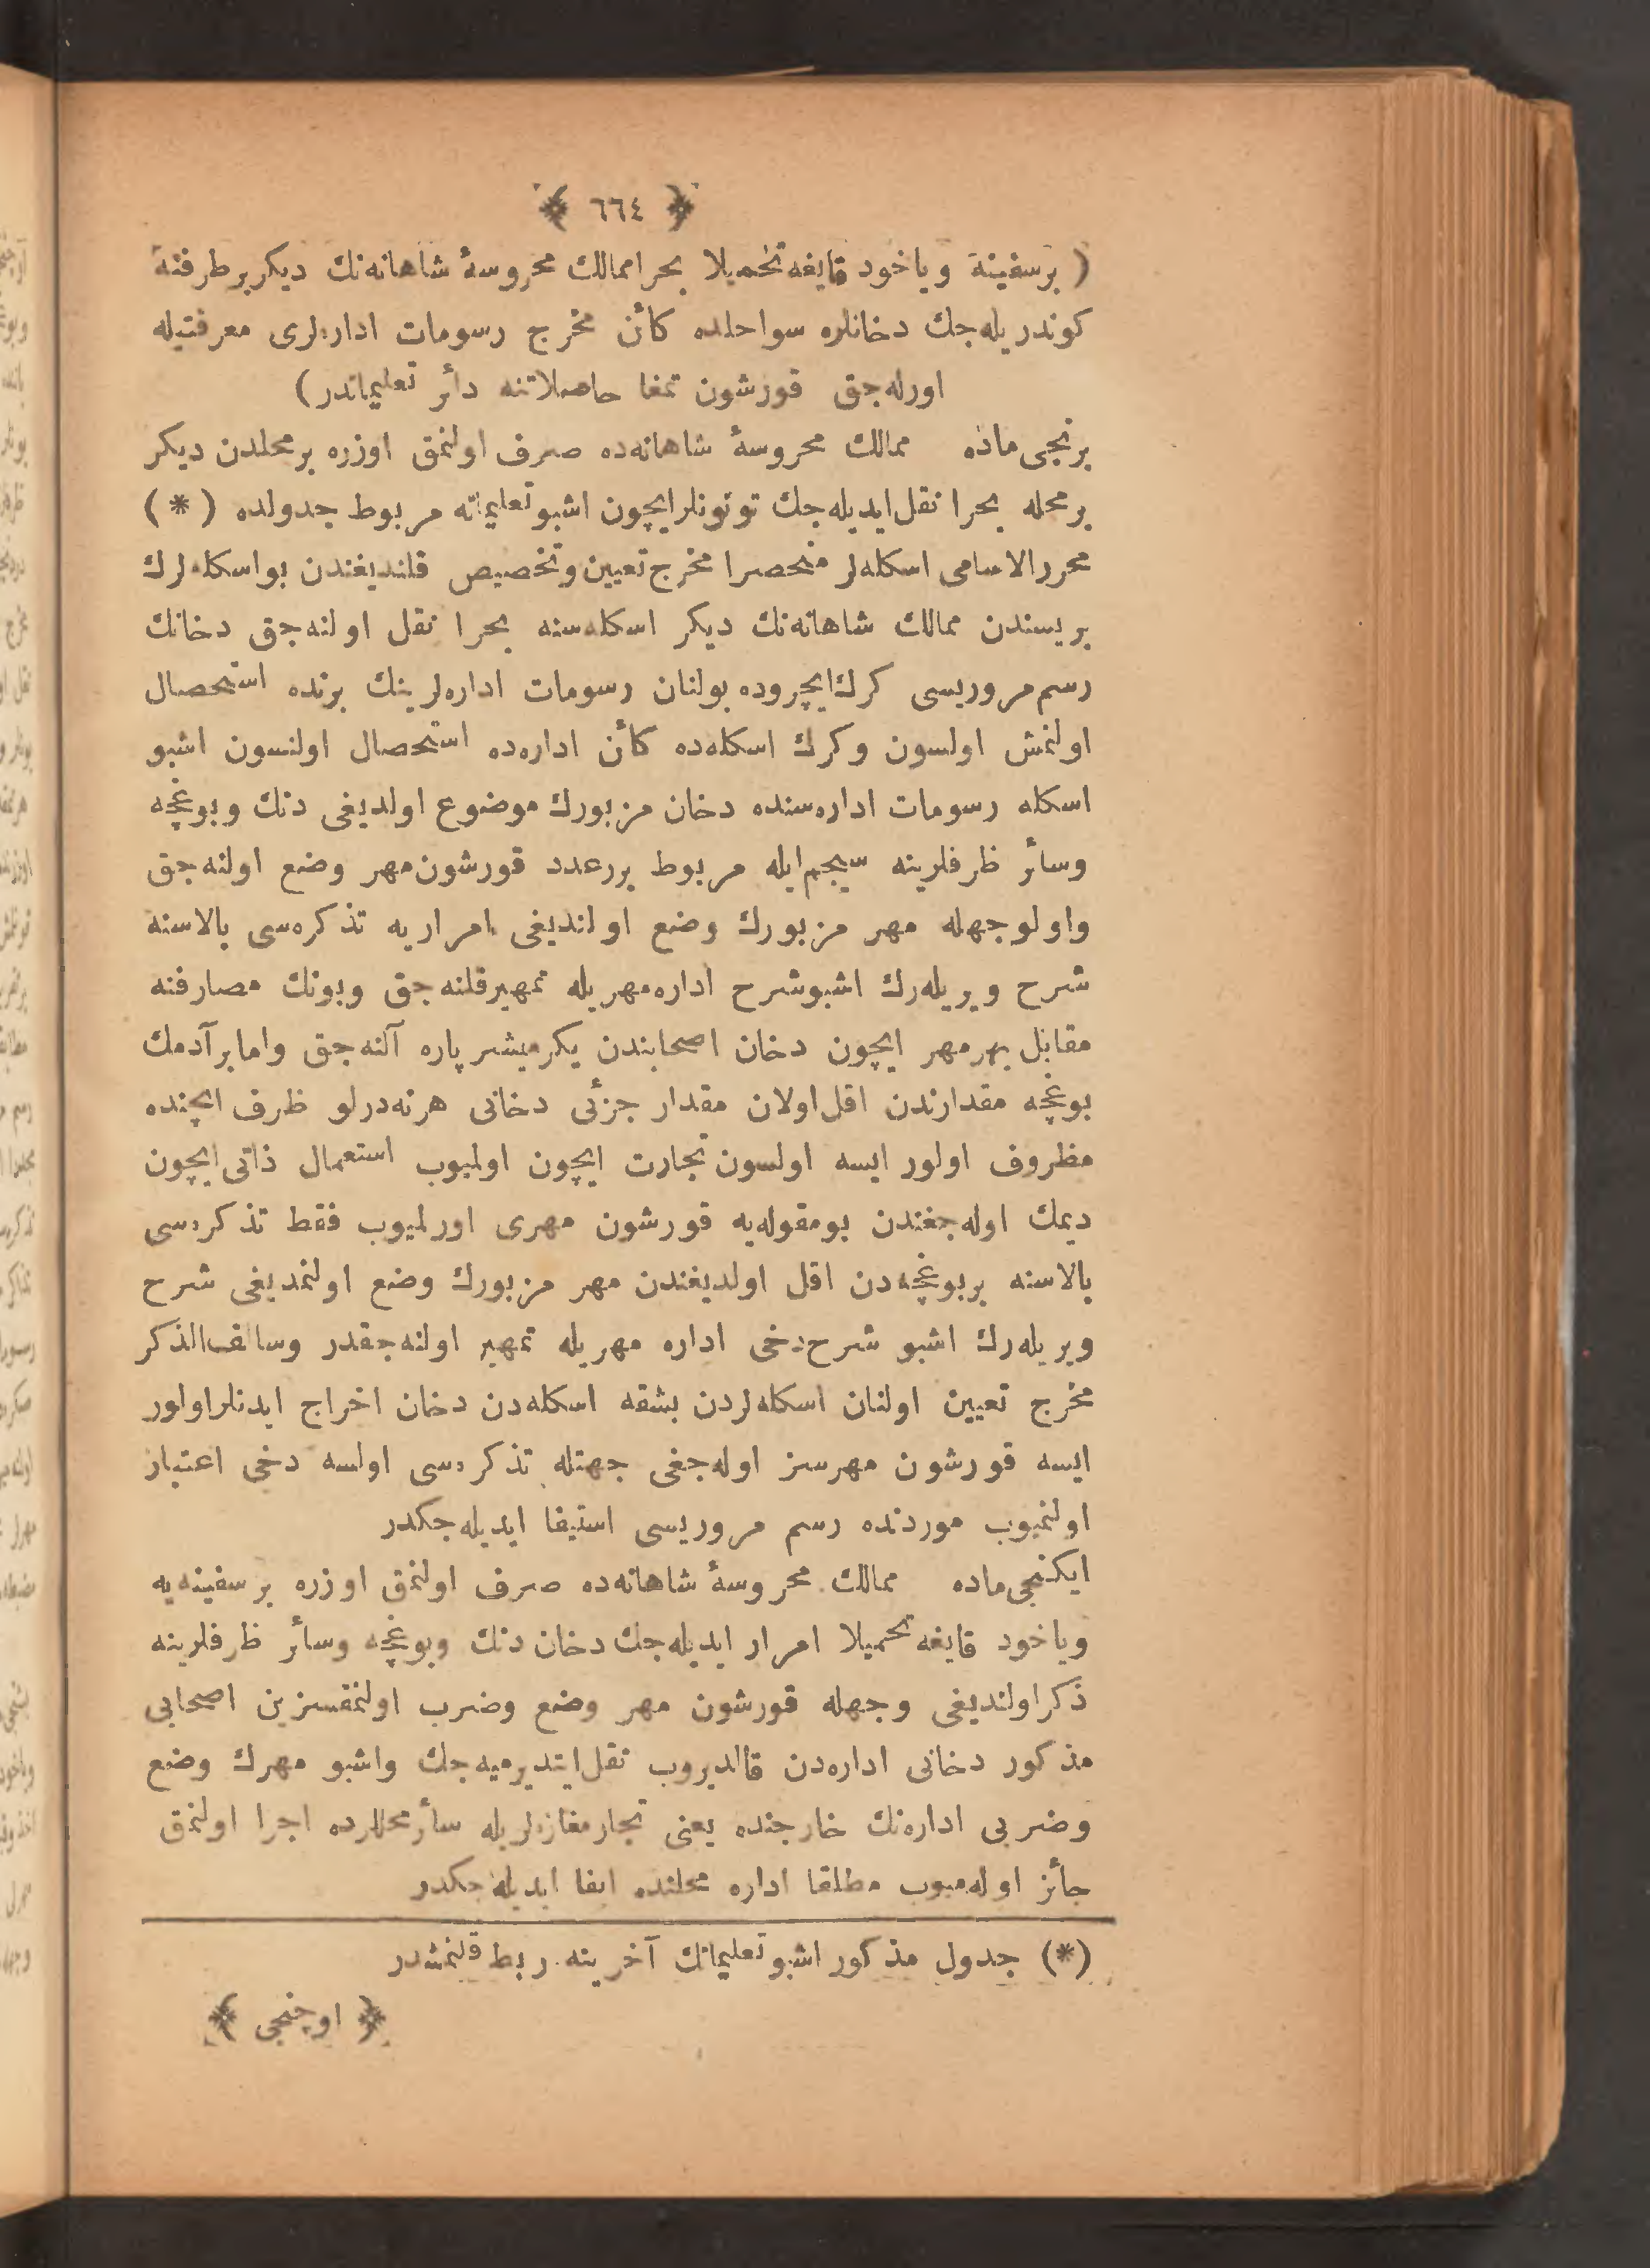 ﴿ ٦٦٤ ﴾
( برسفینهٔ ویاخود قایغه تحمیلا بحرا ممالك محروسهٔ شاهانه‌نك دیكر بر طرفنه
كوندریله‌جك دخانلره سواحلده كائن مخرج رسومات اداره‌لری معرفتیله
اوریله‌جق قورشون تمغا حاصلاتنه دائر تعلیماتدر)
برنجی ماده ممالك محروسهٔ شاهانه‌ده صرف اولنمق اوزره بر محلدن دیكر
بر محله بحرا نقل ایدیله‌جك توتونلر ایچون اشبو تعلیماته مربوط جدولده (*)
محرر الاسامی اسكله‌لر منحصرا مخرج تعیین وتخصیص قلندیغندن بو اسكله‌لرك
بریسندن ممالك شاهانه‌نك دیكر اسكله‌سنه بحرا نقل اولنه‌جق دخانك
رسم مروریسی كرك ایچروده بولنان رسومات اداره‌لرینك برنده استحصال
اولنمش اولسون وكرك اسكله‌ده كائن اداره‌ده استحصال اولنسون اشبو
اسكله رسومات اداره‌سنده دخان مزبورك موضوع اولدیغی دنك وبوغچه
وسائر ظرفلرینه سیجم ایله مربوط برر عدد قورشون مهر وضع اولنه‌جق
واولوجهله مهر مزبورك وضع اولندیغی امراریه تذكره‌سی بالاسنه
شرح ویریله‌رك اشبو شرح اداره مهریله تمهیر قلنه‌جق وبونك مصارفنه
مقابل بهر مهر ایچون دخان اصحابندن یكرمیشر پاره آلنه‌جق واما بر آدمك
بوغچه مقدارندن اقل اولان مقدار جزئی دخانی هر نه‌درلو ظرف ایچنده
مظروف اولور ایسه اولسون تجارت ایچون اولمیوب استعمال ذاتی ایچون
دیمك اوله‌جغندن بومقوله‌یه قورشون مهری اورلمیوب فقط تذكره‌سی
بالاسنه بر بوغچه‌دن اقل اولدیغندن مهر مزبورك وضع اولنمدیغی شرح
ویریله‌رك اشبو شرح دخی اداره مهریله تمهیر اولنه‌جقدر وسالف‌الذكر
مخرج تعیین اولنان اسكله‌لردن بشقه اسكله‌دن دخان اخراج ایدنلر اولور
ایسه قورشون مهرسز اوله‌جغی جهتله تذكره‌سی اولسه دخی اعتبار
اولنمیوب موردنده رسم مروریسی استیفا ایدیله‌جكدر
ایكنجی ماده ممالك محروسهٔ شاهانه‌ده صرف اولنمق اوزره بر سفینه‌یه
ویاخود قایغه تحمیلا امرار ایدیله‌جك دخان دنك وبوغچه وسائر ظرفلرینه
ذكر اولندیغی وجهله قورشون مهر وضع وضرب اولنمقسزین اصحابی
مذكور دخانی اداره‌دن قالدیروب نقل ایتدیرمیه‌جك واشبو مهرك وضع
وضربی اداره‌نك خارجنده یعنی تجار مغازه‌لریله سائر محللرده اجرا اولنمق
جائز اوله‌میوب مطلقا اداره محلنده ایفا ایدیله‌جكدر
(*) جدول مذكور اشبو تعلیماتك آخرینه ربط قلنمشدر
﴿ اوچنجی ﴾